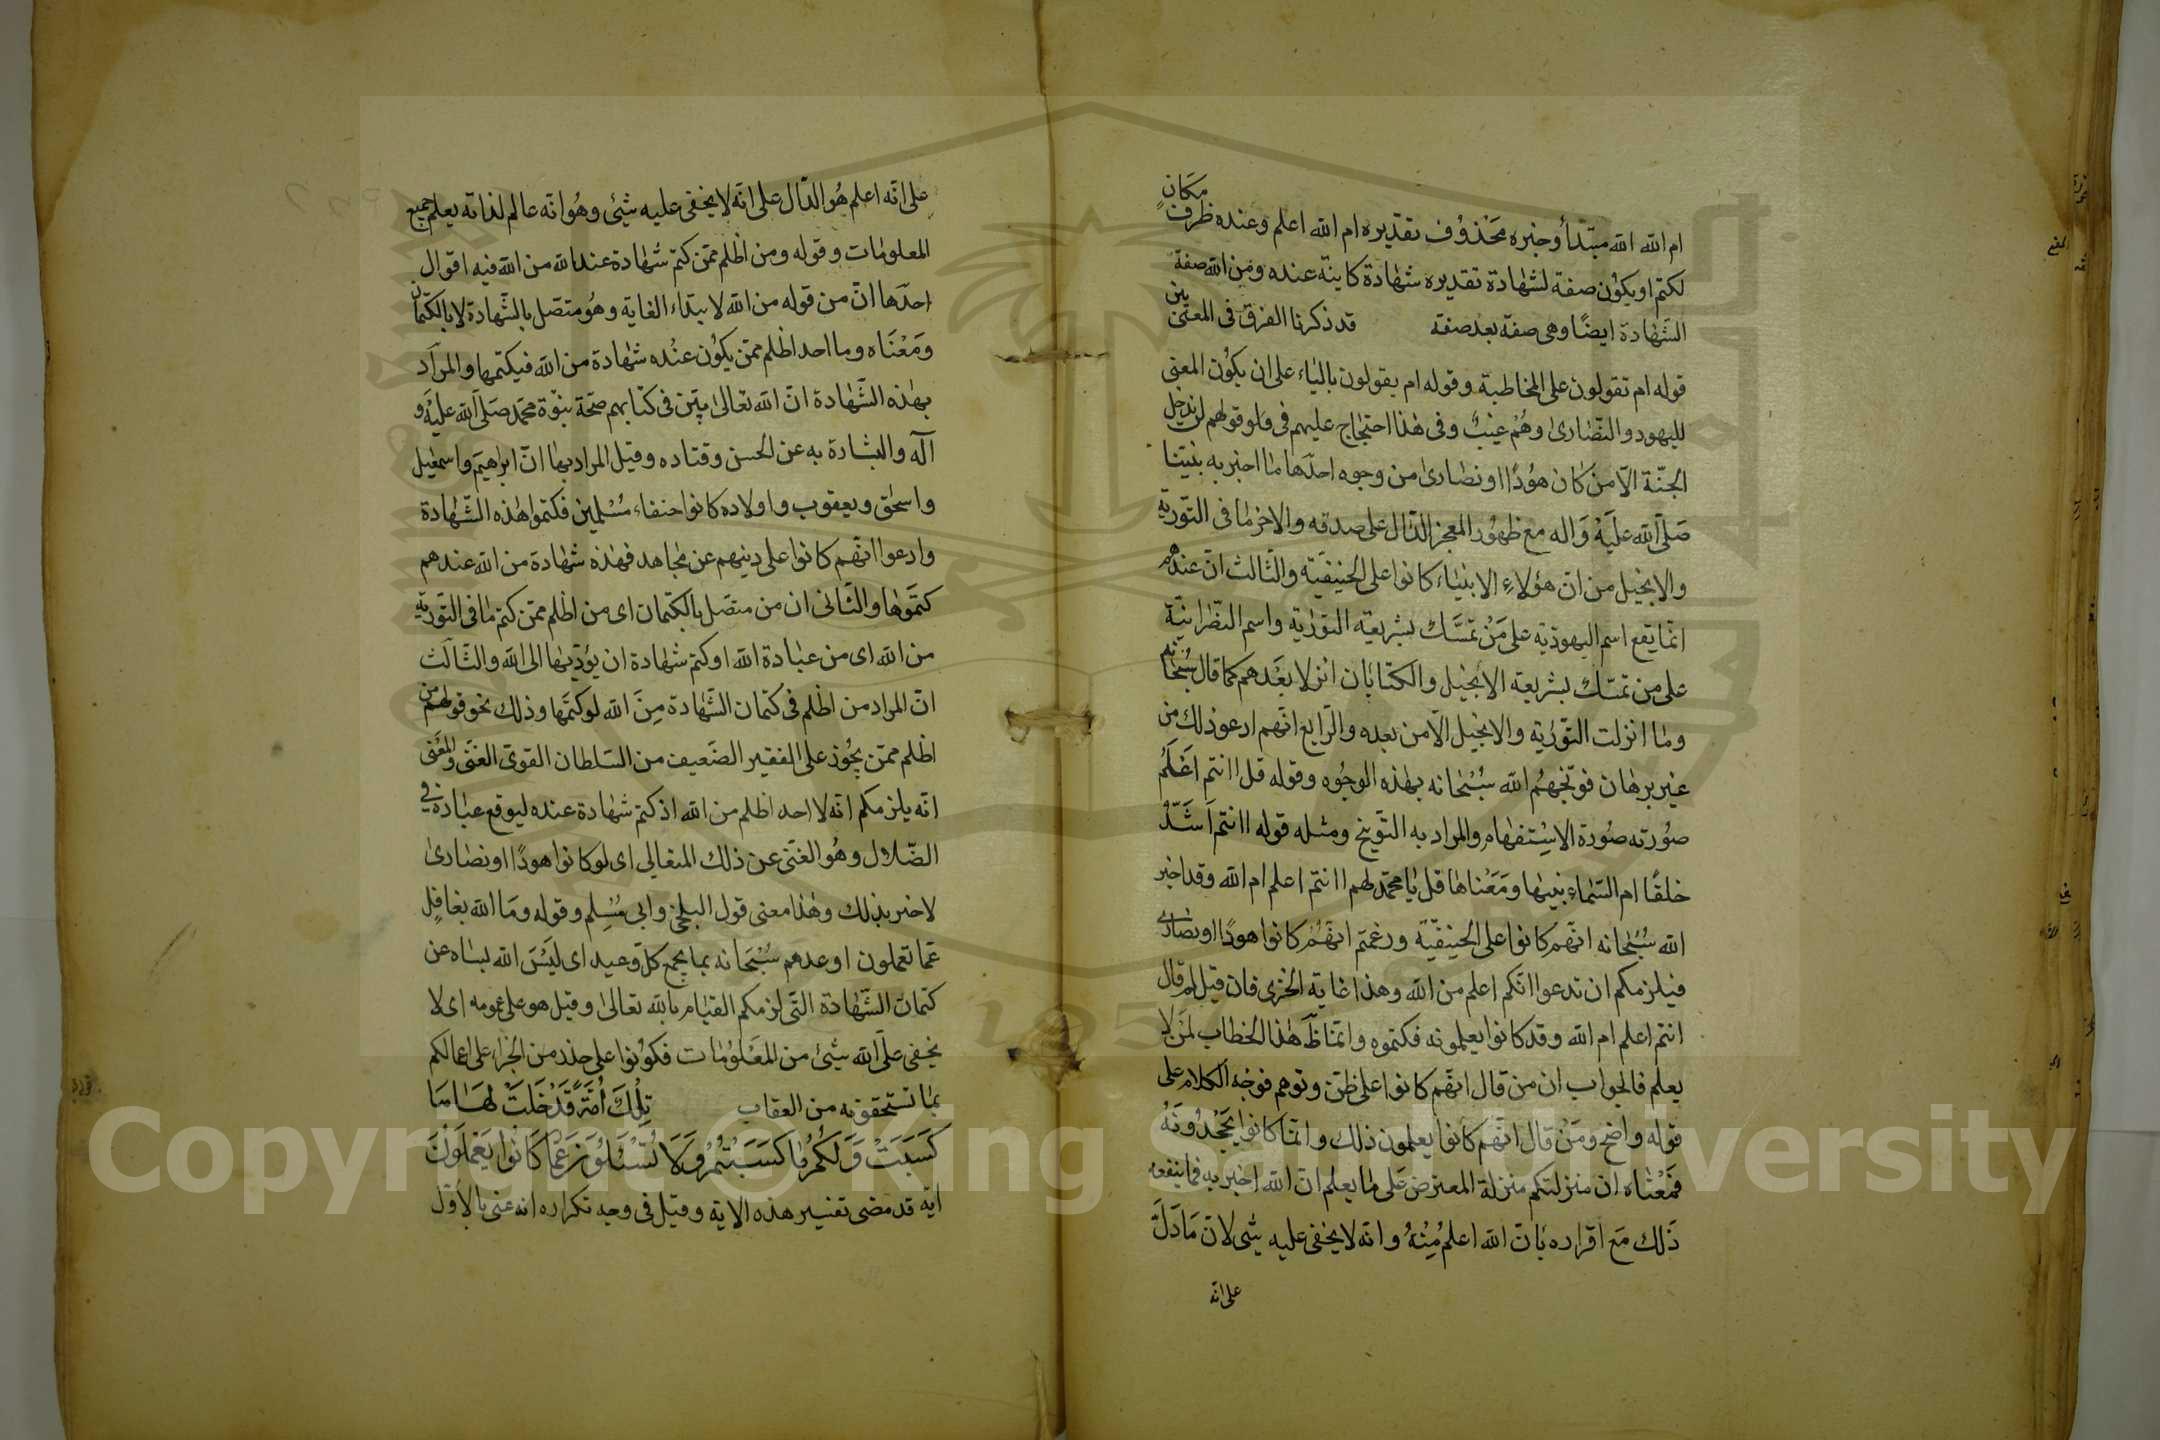 ام الله الله مبتدأ وخبره محذوف تقديره ام الله اعلم وعنده ظرف مكان
لكتم او يكون صفة لشهادة تقديره شهادة كاينة عنده ومن الله صفة
الشهادة ايضًا وهى صفة بعد صفة قد ذكرنا الفرق فى المعنى بين
قوله ام تقولون على المخاطبة وقوله ام يقولون بالياء على ان يكون المعنى
لليهود والنصارى وهم غيب وفى هذا احتجاج عليهم فى قولهم لن يدخل
الجنة الا من كان هودًا او نصارى من وجوه احدها ما اخبر به نبينا
صلى الله عليه واله مع ظهور المعجز الدال على صدقه والاخر ما فى التورية
والانجيل من ان هؤلاء الانبياء كانوا على الحنيفية والثالث ان عندهم
انما يقع اسم اليهودية على من تمسك بشريعة التورية واسم النصرانية
على من تمسك بشريعة الانجيل والكتابان انزلا بعدهم كما قال سبحانه
وما انزلت التورية والانجيل الا من بعده والرابع انهم ادعوا ذلك من
غير برهان فوبخهم الله سبحانه بهذه الوجوه وقوله قل اانتم اعلم
صورته صورة الاستفهام والمراد به التوبيخ ومثله قوله اانتم اشد
خلقًا ام السماء بنيها ومعناها قل يا محمد لهم اانتم اعلم ام الله وقد اخبر
الله سبحانه انهم كانوا على الحنيفية وزعمتم انهم كانوا هودًا او نصارى
فيلزمكم ان تدعوا انكم اعلم من الله وهذا غاية الخزى فان قيل لم قال
انتم اعلم ام الله وقد كانوا يعلمونه فكتموه وانما ظاهر هذا الخطاب لمن لا
يعلم فالجواب ان من قال انهم كانوا على ظن وتوهم فوجه الكلام على
قوله واضح ومن قال انهم كانوا يعلمون ذلك وانما كانوا يجحدونه
فمعناه ان منزلتكم منزلة المعترض على ما يعلم ان الله اخبر به فما ينفعه
ذلك مع اقراره بان الله اعلم منه وانه لا يخفى عليه شى لان ما دل
على انه
على انه اعلم هو الدال على انه لا يخفى عليه شئ وهو انه عالم لذاته يعلم جميع
المعلومات وقوله ومن اظلم ممن كتم شهادة عنده من الله فيه اقوال
احدها ان من قوله من الله لابتداء الغاية وهو متصل بالشهادة لا بالكتمان
ومعناه وما احد اظلم ممن يكون عنده شهادة من الله فيكتمها والمراد
بهذه الشهادة ان الله تعالى بين فى كتابهم صحة نبوة محمد صلى الله عليه و
آله والبشارة به عن الحسن وقتاده وقيل المراد بها ان ابراهيم واسمعيل
واسحق ويعقوب واولاده كانوا حنفاء مسلمين فكتموا هذه الشهادة
وادعوا انهم كانوا على دينهم عن مجاهد فهذه شهادة من الله عندهم
كتموها والثانى ان من متصل بالكتمان اى من اظلم ممن كتم ما فى التورية
من الله اى من عبادة الله او كتم شهادة ان يؤديها الى الله والثالث
ان المراد من اظلم فى كتمان الشهادة من الله لو كتمها وذلك نحو قولهم من
اظلم ممن يجوز على الفقير الضعيف من السلطان القوى الغنى والمعنى
انه يلزمكم انه لا احد اظلم من الله اذ كتم شهادة عنده ليوقع عباده فى
الضلال وهو الغنى عن ذلك المتعالى اى لو كانوا هودًا او نصارى
لاخبر بذلك وهذا معنى قول البلخى وابى مسلم وقوله وما الله بغافل
عما تعملون اوعدهم سبحانه بما يجمع كل وعيد اى ليس الله بساه عن
كتمان الشهادة التى لزمكم القيام بالله تعالى وقيل هو على عمومه اى لا
يخفى على الله شئ من المعلومات فكونوا على حذر من الجزاء على اعمالكم
بما تستحقونه من العقاب تلك امة قد خلت لها ما
كسبت ولكم ما كسبتم ولا تسئلون عما كانوا يعملون
اية قد مضى تفسير هذه الاية وقيل فى وجه تكراره انه عنى بالاول
Copyright © King Saud University
1957